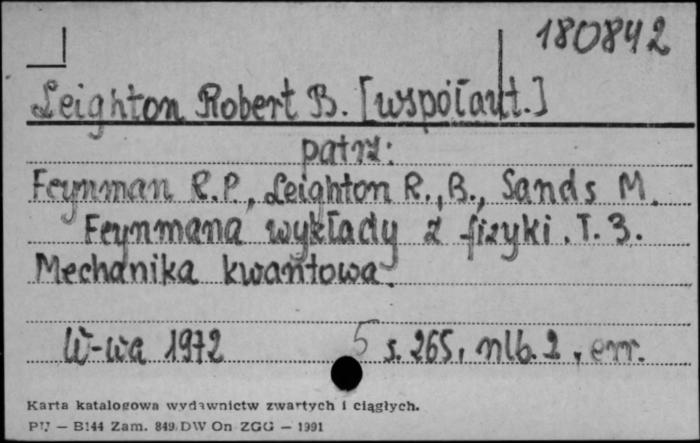 180842
Leighton Robert B. [współaut.]
patrz:
Feynman R.P., Leighton R.,B., Sands M.
Feynmana wykłady z fizyki. T. 3.
Mechanika kwantowa.
W-wa 1972 5 s. 265, nlb. 2, err.
Karta katalogowa wydawnictw zwartych i ciągłych.
PU — B144 Zam. 849/DW On ZGG — 1991